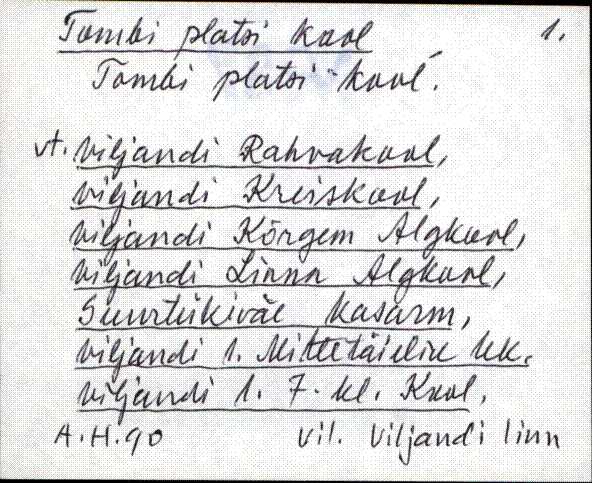 Tombi platsi kool 1.
Tombi platsi kool.
vt. Viljandi Rahvakool,
Viljandi Kreiskool,
Viljandi Kõrgem Algkool,
Viljandi Linna Algkool,
Suurtükiväe kasarm,
Viljandi 1. Mittetäielik kk.
Viljandi 1. 7. kl. Kool.
A.H.90 Vil. Viljandi linn